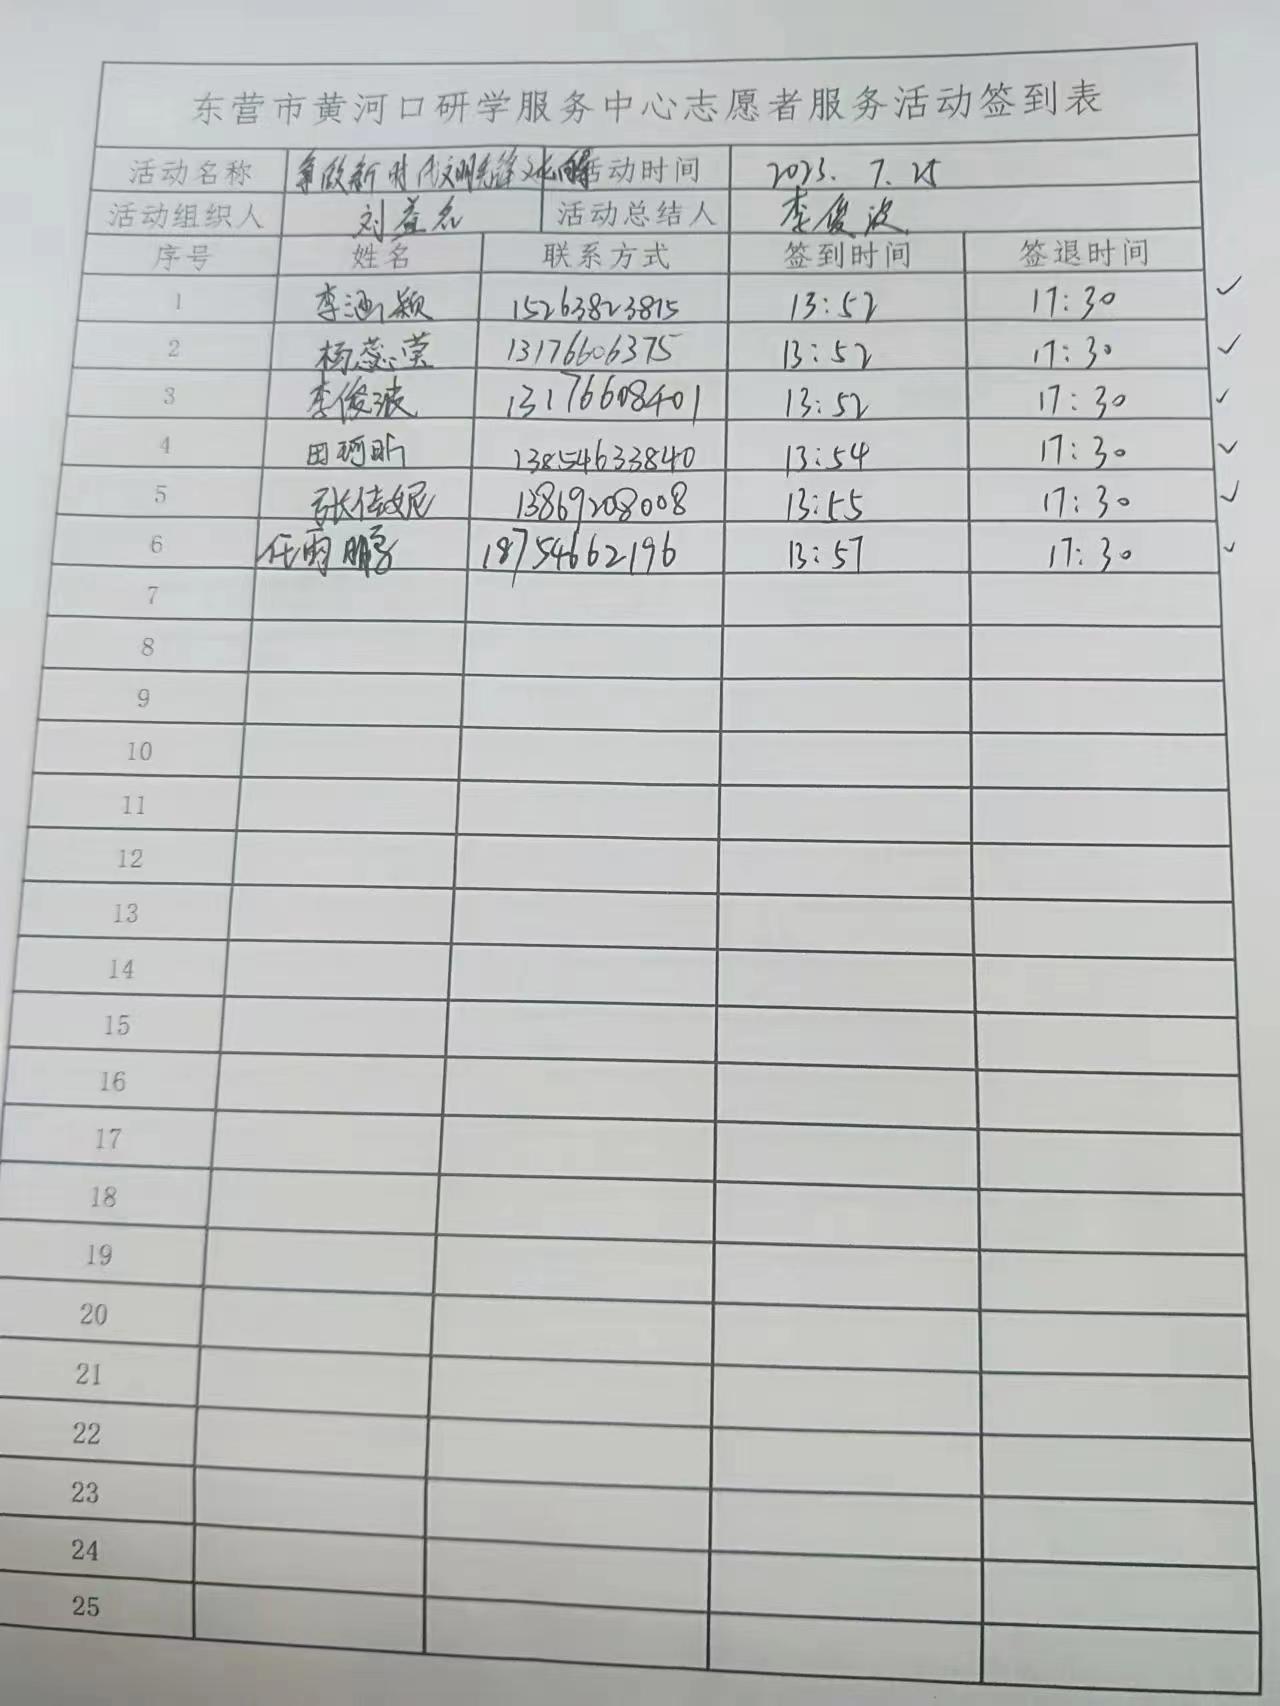 东营市黄河口研学服务中心志愿者服务活动签到表
活动名称 争做新时代文明先锋 活动时间 2023.7.25
活动组织人 刘益名 活动总结人 李俊波
序号 姓名 联系方式 签到时间 签退时间
1 李涵颖 15263823815 13:52 17:30 ✓
2 杨蕊莹 13176606375 13:52 17:30 ✓
3 李俊波 13176608401 13:52 17:30 ✓
4 田珂昕 13854633840 13:54 17:30 ✓
5 张佳妮 13869208008 13:55 17:30 ✓
6 任雨鹏 18754662196 13:57 17:30 ✓
7
8
9
10
11
12
13
14
15
16
17
18
19
20
21
22
23
24
25